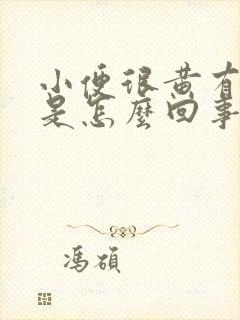 小便很黄有
是怎麼回事
馮碩